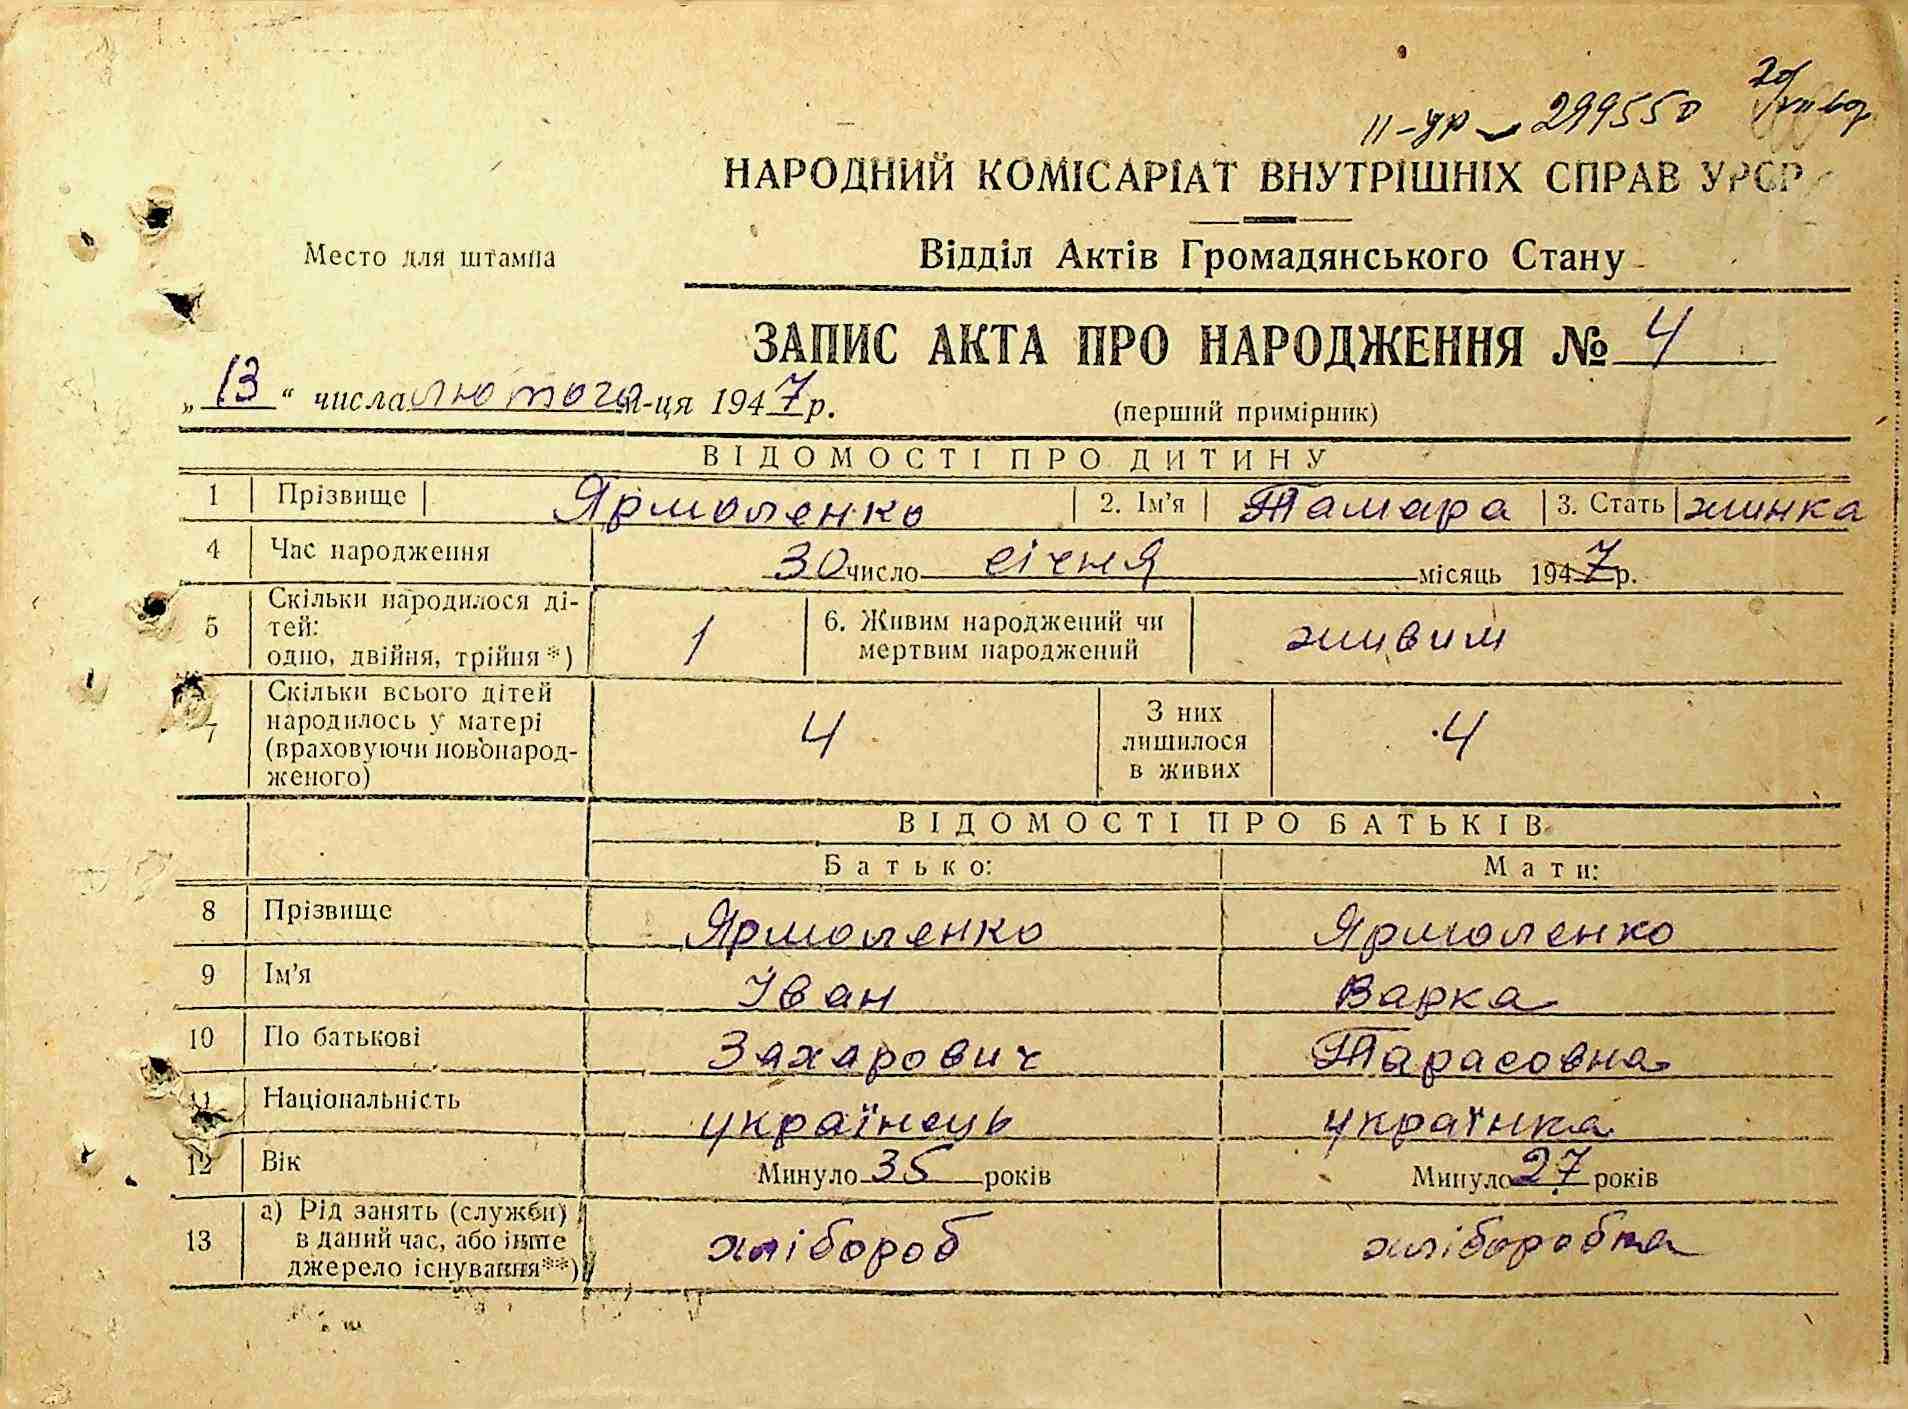 II-ур 299550
НАРОДНИЙ КОМІСАРІАТ ВНУТРІШНІХ СПРАВ УРСР
Место для штампа
Відділ Актів Громадянського Стану
ЗАПИС АКТА ПРО НАРОДЖЕННЯ № 4
„13“ числа лютого м-ця 1947 р.
(перший примірник)
ВІДОМОСТІ ПРО ДИТИНУ
1 Прізвище Ярмоленко 2. Ім'я Тамара 3. Стать жинка
4 Час народження 30 число січня місяць 1947 р.
5 Скільки народилося ді-
тей:
одно, двійня, трійня*) 1 6. Живим народжений чи
мертвим народжений живим
7 Скільки всього дітей
народилось у матері
(враховуючи новонарод-
женого) 4 З них
лишилося
в живих 4
ВІДОМОСТІ ПРО БАТЬКІВ
Батько: Мати:
8 Прізвище Ярмоленко Ярмоленко
9 Ім'я Іван Варка
10 По батькові Захарович Тарасовна
11 Національність українець українка
12 Вік Минуло 35 років Минуло 27 років
13 а) Рід занять (служби)
в даний час, або інше
джерело існування**) хлібороб хліборобка